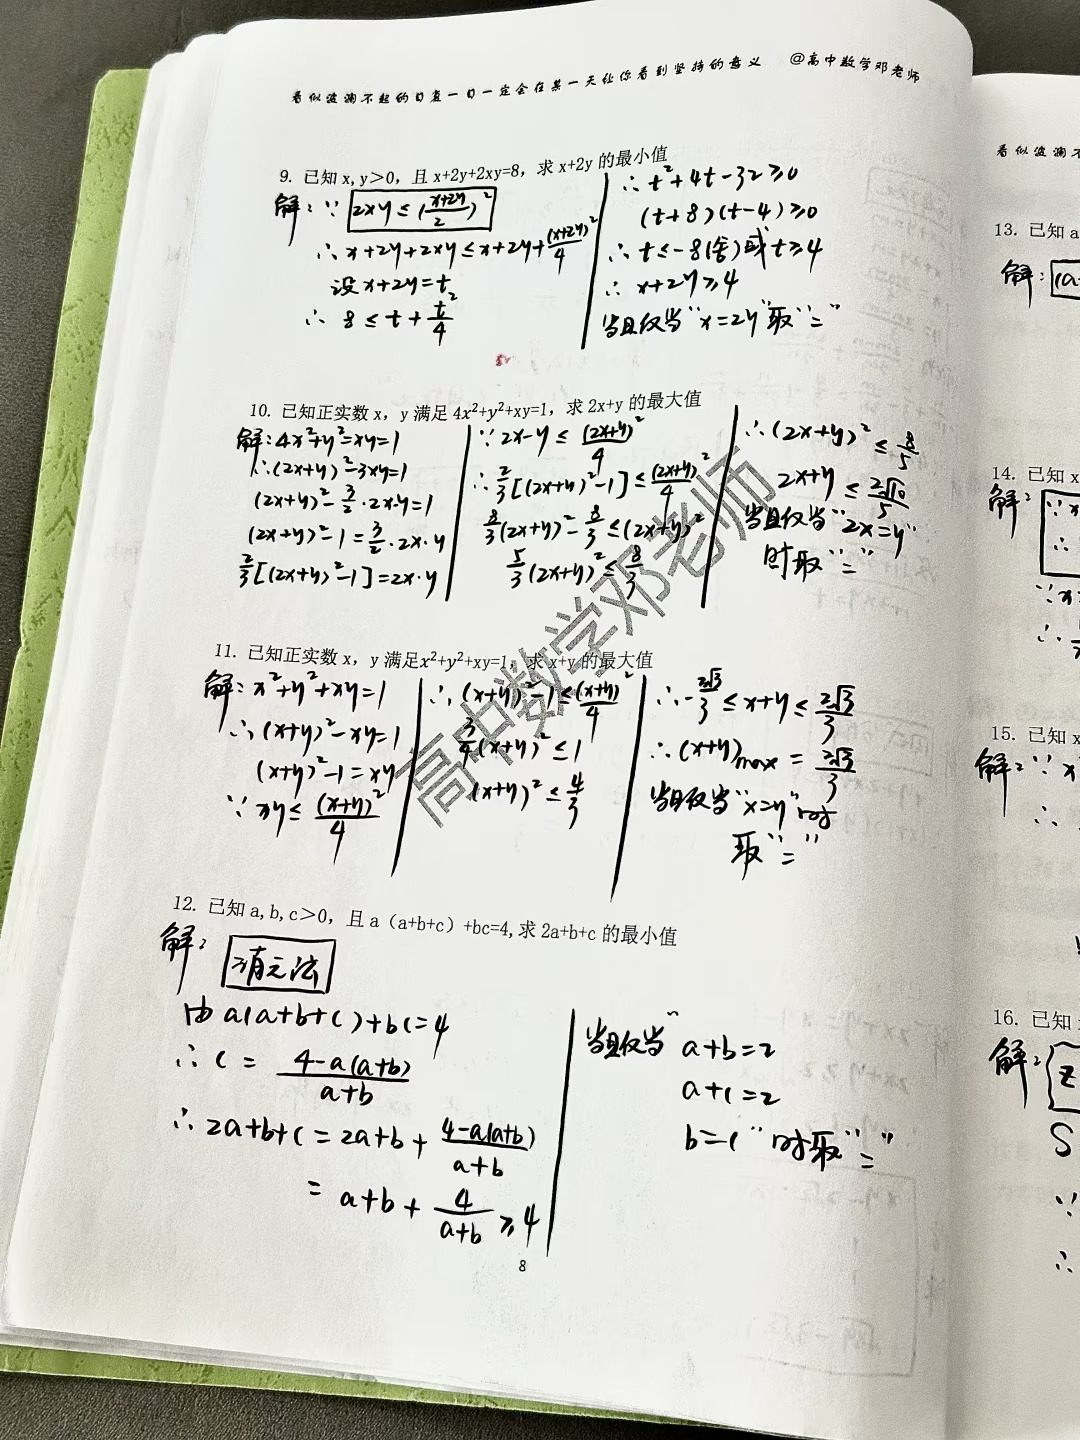 看似波澜不起的日复一日一定会在某一天让你看到坚持的意义 @高中数学邓老师
9. 已知 x,y＞0，且 x+2y+2xy=8，求 x+2y 的最小值
解：∵ 2xy ≤ ((x+2y)/2)²
∴ x+2y+2xy ≤ x+2y+(x+2y)²/4
设 x+2y=t
∴ 8 ≤ t + t²/4
∴ t²+4t-32≥0
(t+8)(t-4)≥0
∴ t≤-8(舍)或 t≥4
∴ x+2y≥4
当且仅当"x=2y"取"="
10. 已知正实数 x，y 满足 4x²+y²+xy=1，求 2x+y 的最大值
解：4x²+y²=xy=1
∴(2x+y)²-3xy=1
(2x+y)²-3/2·2x·y=1
(2x+y)²-1=3/2·2x·y
2/3[(2x+y)²-1]=2x·y
∵ 2x·y ≤ (2x+y)²/4
∴ 2/3[(2x+y)²-1] ≤ (2x+y)²/4
8/3(2x+y)²-8/3 ≤ (2x+y)²
5/3(2x+y)² ≤ 8/3
∴(2x+y)² ≤ 8/5
2x+y ≤ 2√10/5
当且仅当"2x=y"
时取"="
11. 已知正实数 x，y 满足x²+y²+xy=1，求 x+y 的最大值
解：x²+y²+xy=1
∴(x+y)²-xy=1
(x+y)²-1=xy
∵ xy ≤ (x+y)²/4
∴(x+y)²-1≤(x+y)²/4
3/4(x+y)² ≤1
(x+y)² ≤ 4/3
∴-2√3/3 ≤ x+y ≤ 2√3/3
∴(x+y)max = 2√3/3
当且仅当"x=y"时
取"="
12. 已知 a,b,c＞0，且 a（a+b+c）+bc=4,求 2a+b+c 的最小值
解：消元法
由 a(a+b+c)+bc=4
∴ c = (4-a(a+b))/(a+b)
∴ 2a+b+c = 2a+b + (4-a(a+b))/(a+b)
= a+b + 4/(a+b) ≥4
当且仅当"a+b=2
a+c=2
b=c"时取"="
8
高中数学邓老师
看似波澜不
13. 已知 a
解：
14. 已知 x
解：
∵x
∴
∵x
∴
15. 已知 x
解：∵ x
∴
16. 已知
解：
S
∵
∴